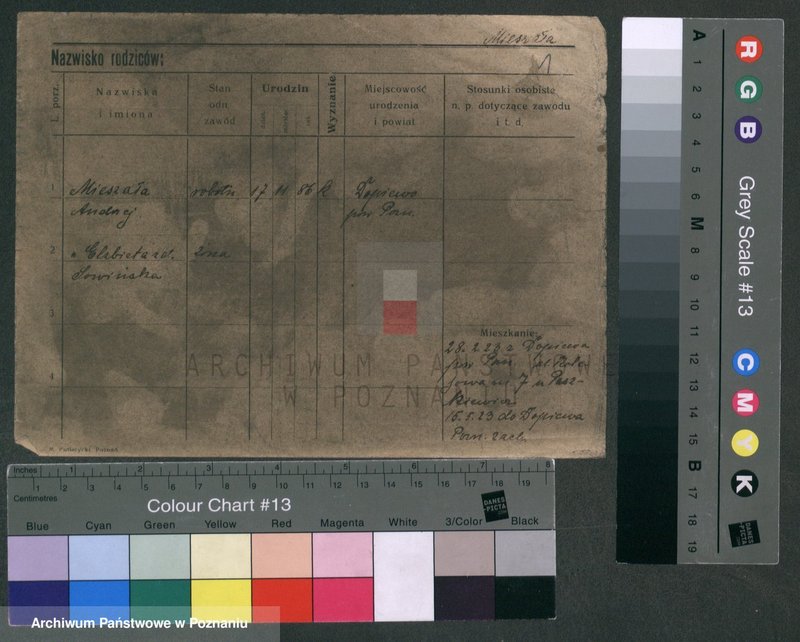 Mieszała
Nazwisko rodziców:
1
L. porz.
Nazwiska
i imiona
Stan
odn.
zawód
Urodzin
dzień
miesiąc
rok
Wyznanie
Miejscowość
urodzenia
i powiat
Stosunki osobiste
n. p. dotyczące zawodu
i t. d.
1 Mieszała robotn. 17 11 86 k Dopiewo
Andrzej pow Pozn.
2 " Elżbieta zd. żona
Sowińska
3
4
Mieszkanie:
28.2.23 z Dopiewa
pow Pozn
7 u Pasz-
kiewicz
15.5.23 do Dopiewa
Pozn. zach.
ARCHIWUM PAŃSTWOWE
W POZNANIU
M. Putiatycki, Poznań
Inches 1 2 3 4 5 6 7 8
Centimetres 1 2 3 4 5 6 7 8 9 10 11 12 13 14 15 16 17 18 19
Colour Chart #13
DANES
-PICTA
.COM
Blue Cyan Green Yellow Red Magenta White 3/Color Black
Archiwum Państwowe w Poznaniu
A 1 2 3 4 5 6 M 8 9 10 11 12 13 14 15 B 17 18 19
R
G
B
Grey Scale #13
C
M
Y
K
DANES
-PICTA
.COM